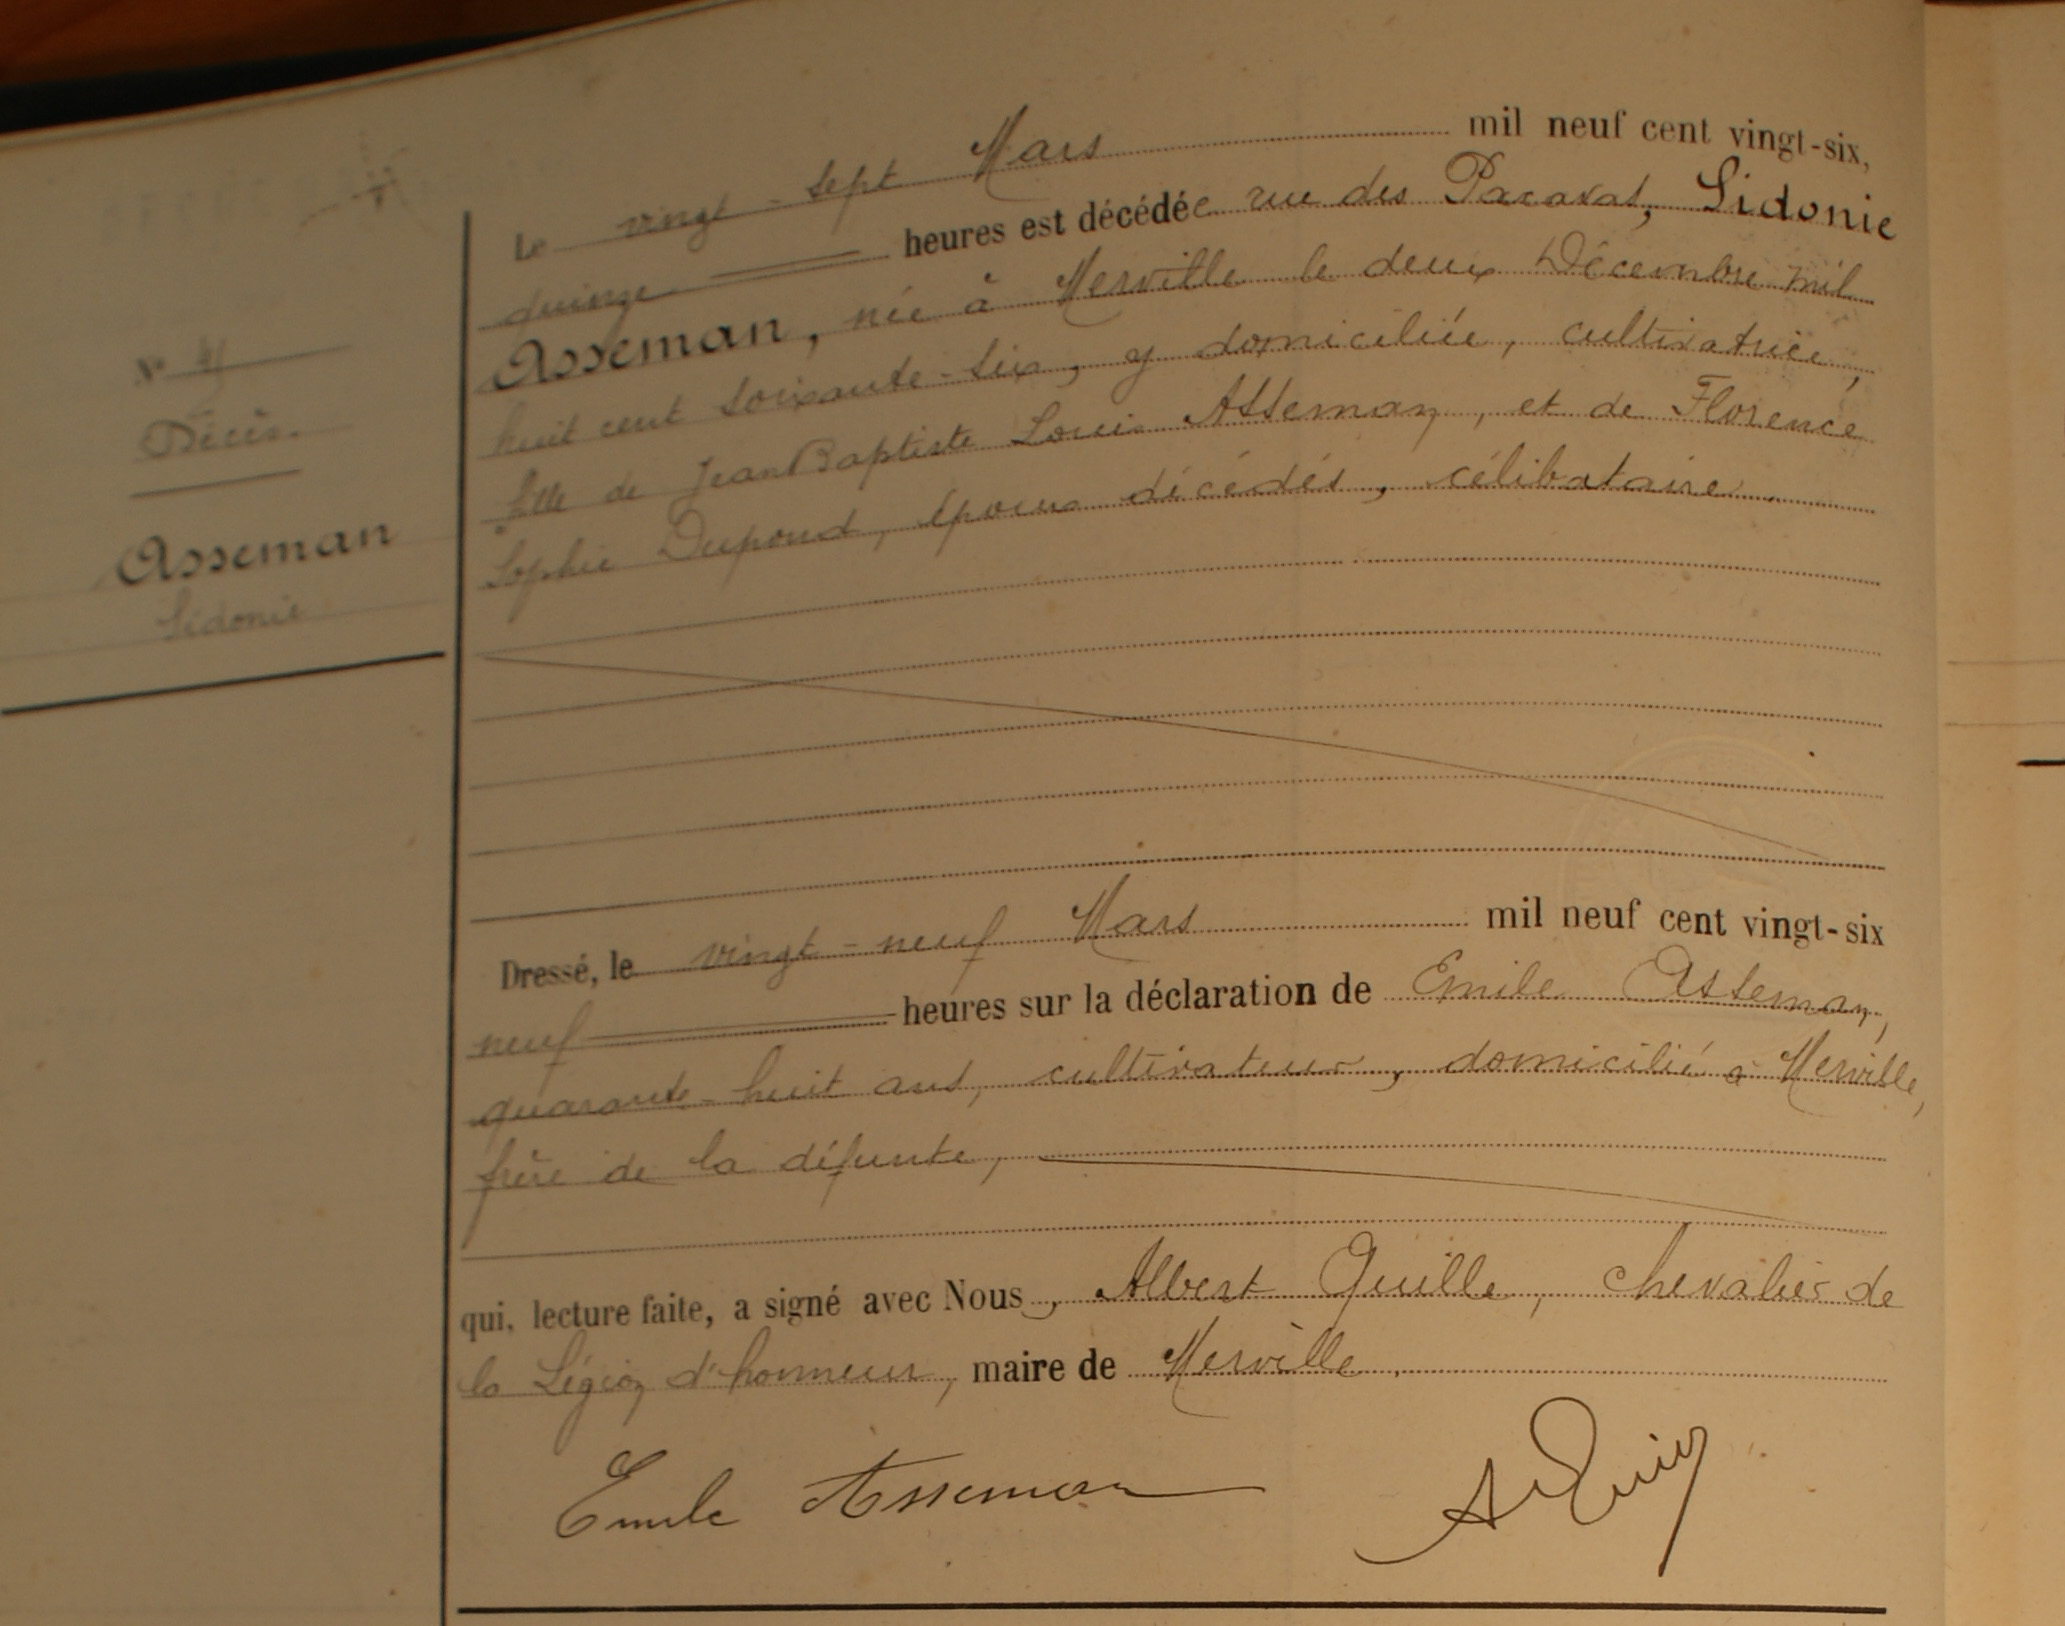 N°
Décès.
Asseman
Sidonie
Le vingt-sept Mars mil neuf cent vingt-six,
quinze heures est décédée rue des Pacavat, Sidonie
Asseman, née à Merville le deux Décembre mil
huit cent soixante-six, y domiciliée, cultivatrice,
fille de Jean Baptiste Louis Asseman, et de Florence
Sophie Dupond, époux décédés, célibataire.
Dressé, le vingt-neuf Mars mil neuf cent vingt-six
neuf heures sur la déclaration de Emile Asseman,
quarante-huit ans, cultivateur, domicilié à Merville,
frère de la défunte,
qui, lecture faite, a signé avec Nous, Albert Quille, chevalier de
la Légion d'honneur, maire de Merville.
Emile Asseman